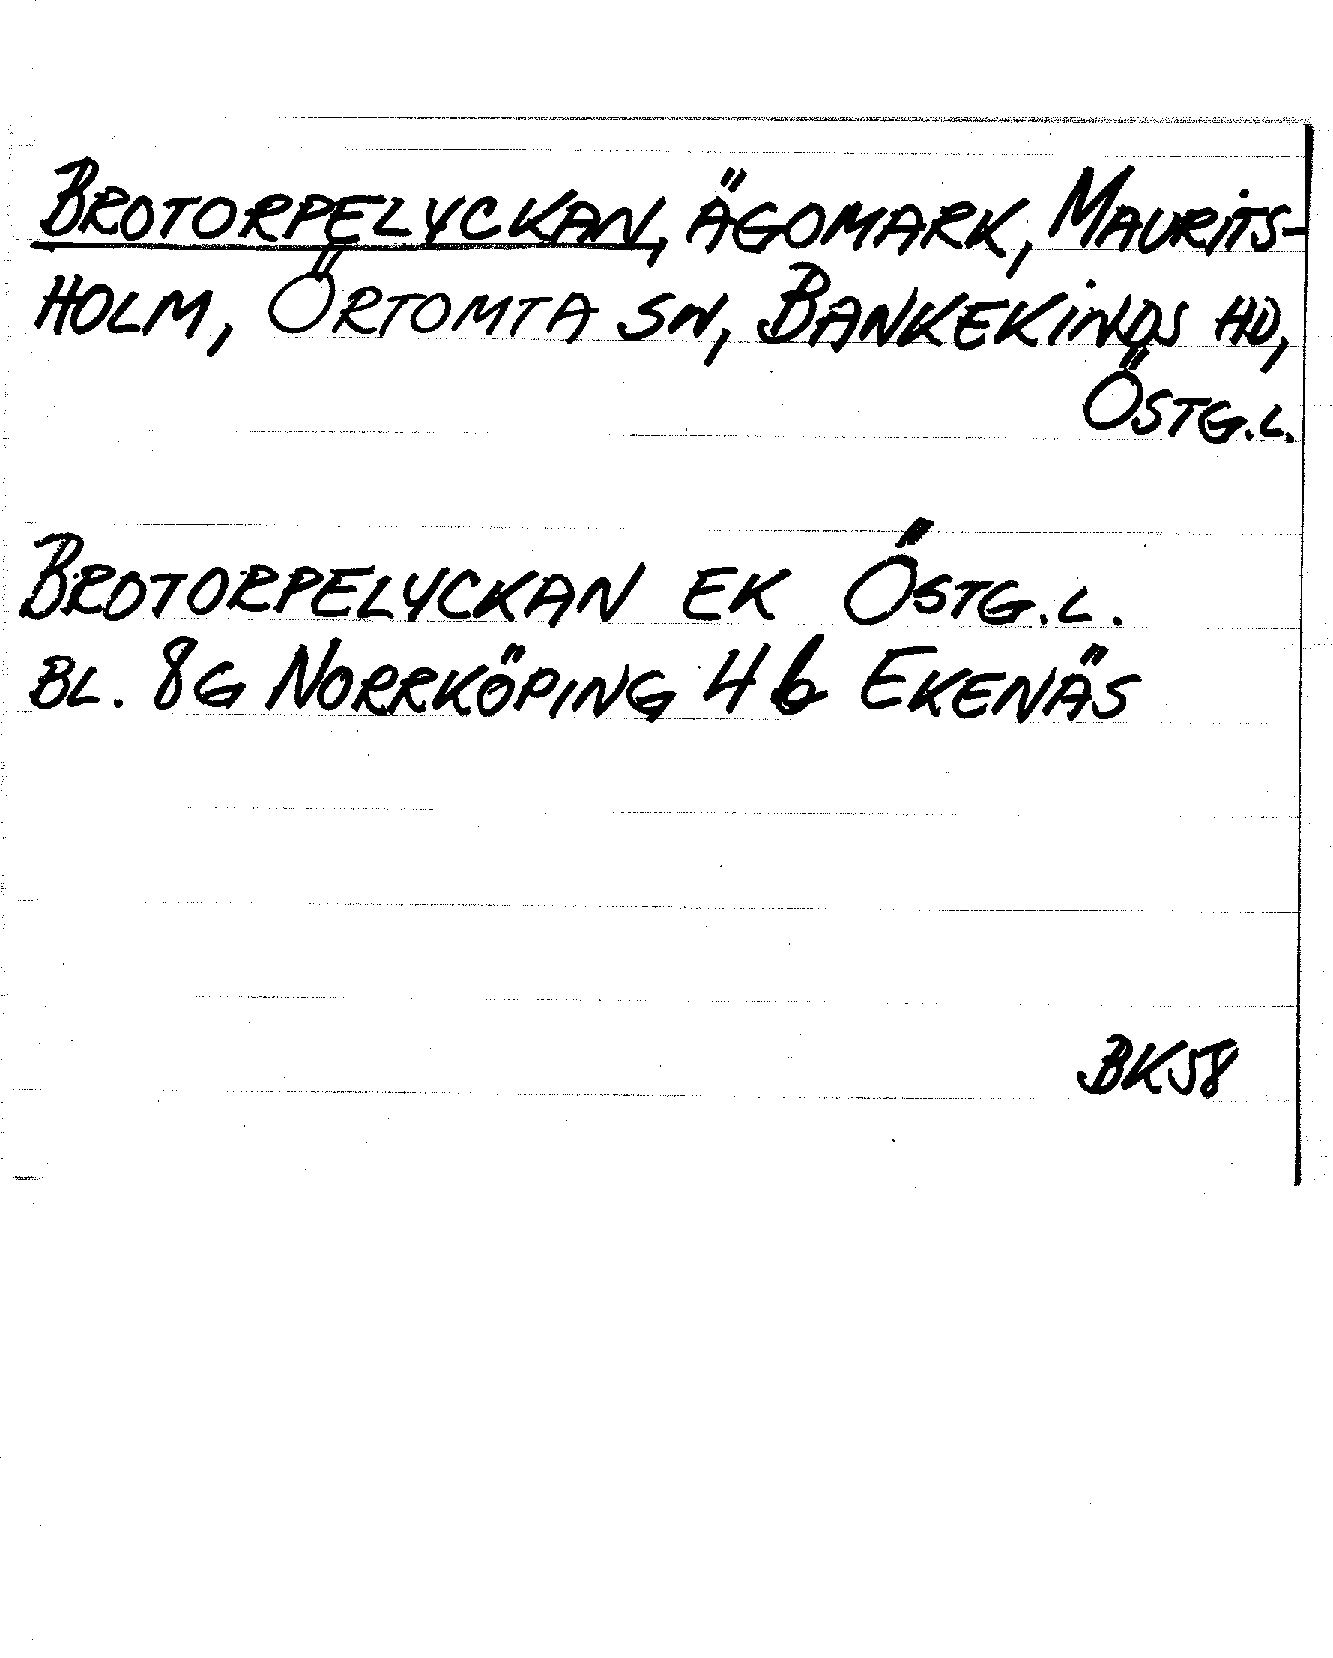 BROTORPELYCKAN, ÄGOMARK, MAURITS-
HOLM, ÖRTOMTA SN, BANKEKINDS HD,
ÖSTG.L.
BROTORPELYCKAN EK ÖSTG.L.
BL. 8G NORRKÖPING 4b EKENÄS
BK58